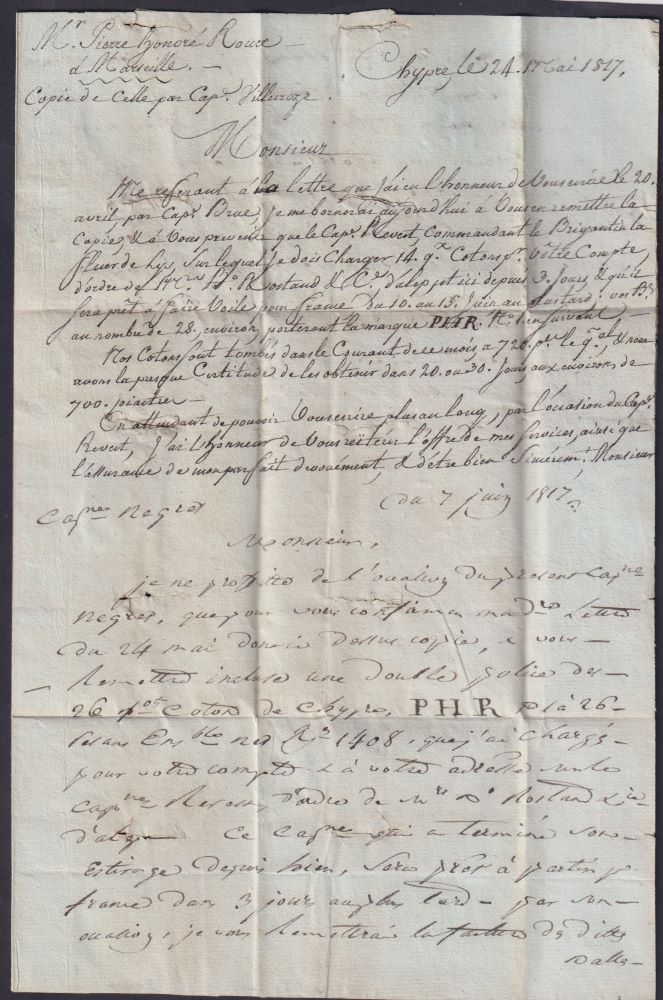 Mr. Pierre honoré Roux
à Marseille. —
Chypre, le 24. Mai 1817,
Copie de Celle par Capn. Villecroze.
Monsieur
Me referant à la lettre que J'ai eu l'honneur de Vous écrire le 20.
avril, par Capn. Brue, Je me bornerai aujourd'hui à Vous en remettre la
Copie, & à Vous prevenir que le Capn. Revert, Commandant le Brigantin la
fleur de Lys, Sur lequel Je dois Charger 14. qx Cotons pr. Vôtre Compte,
d'ordre de Mrs. Do. Rostand & Ce. d'alep, est ici depuis 3. Jours, & qu'il
Sera prêt à faire Voile pour france du 10. au 15. Juin au plus tard: vos Bs.
au nombre de 28. environ, porteront la marque PHR. No. 1. en Suivant,
Nos Cotons sont tombés dans le Courant de ce mois à 720. ps. le qal. & nous
avons la presque Certitude de les obtenir dans 20. ou 30. Jours, aux environs de
700. piastres —
En attendant de pouvoir Vous écrire plus au long, par l'ocasion du Capn.
Revert, J'ai l'honneur de Vous reiterer l'offre de mes Services, ainsi que
l'assurance de mon parfait devouement, & d'être bien Sincérem. Monsieur
Du 7 juin 1817.
Capne Negrel
Monsieur,
je ne profitte de l'ocasion du present Capne
Negrel, que pour vous confirmer ma dre Lettre
du 24 mai dont ci dessus copie, & vous
Remettre incluse une double police des
26 Coton de Chypre, PHR 1 à 26
pesans Ensble net 1408, que j'ai chargé
pour votre compte & à votre adresse sur le
Capne Revert, d'ordre de Mrs Do Rostand & Cie
d'alep Ce Capne qui a terminé son
Estivage depuis hier, sera prêt à partir pr
france dans 3 jours au plus tard — par son
ocasion, je vous Remettrai la facture de dittes
Balles